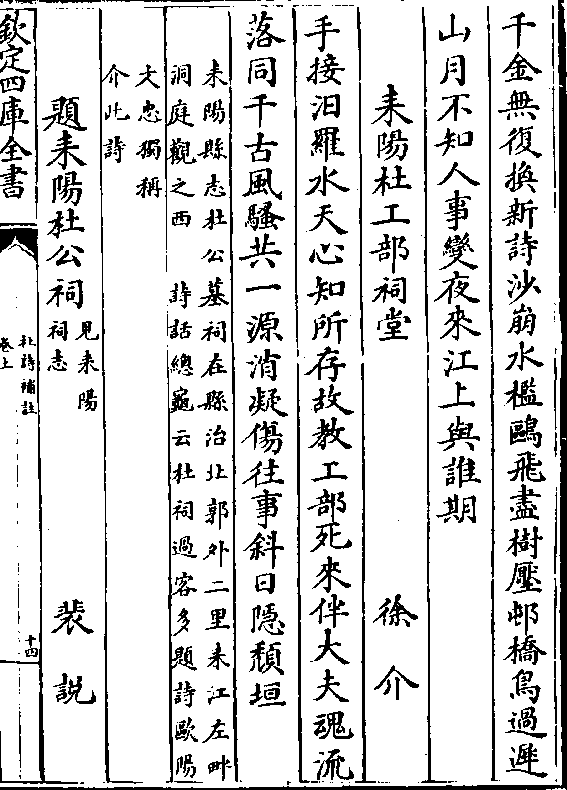 千金無復換新詩沙崩水檻鷗飛盡樹壓邨橋鳥過遲
山月不知人事變夜來江上與誰期
耒陽杜工部祠堂　徐介
手接汨羅水天心知所存故教工部死來伴大夫魂流
落同千古風騷共一源消凝傷往事斜日隱頹垣
耒陽縣志杜公墓祠在縣治北郭外二里耒江左畔
洞庭觀之西　詩話總龜云杜祠過客多題詩歐陽
文忠獨稱
介此詩
題耒陽杜公祠
見耒陽
祠志
裴說
欽定四庫全書
杜詩補註
卷上
十四